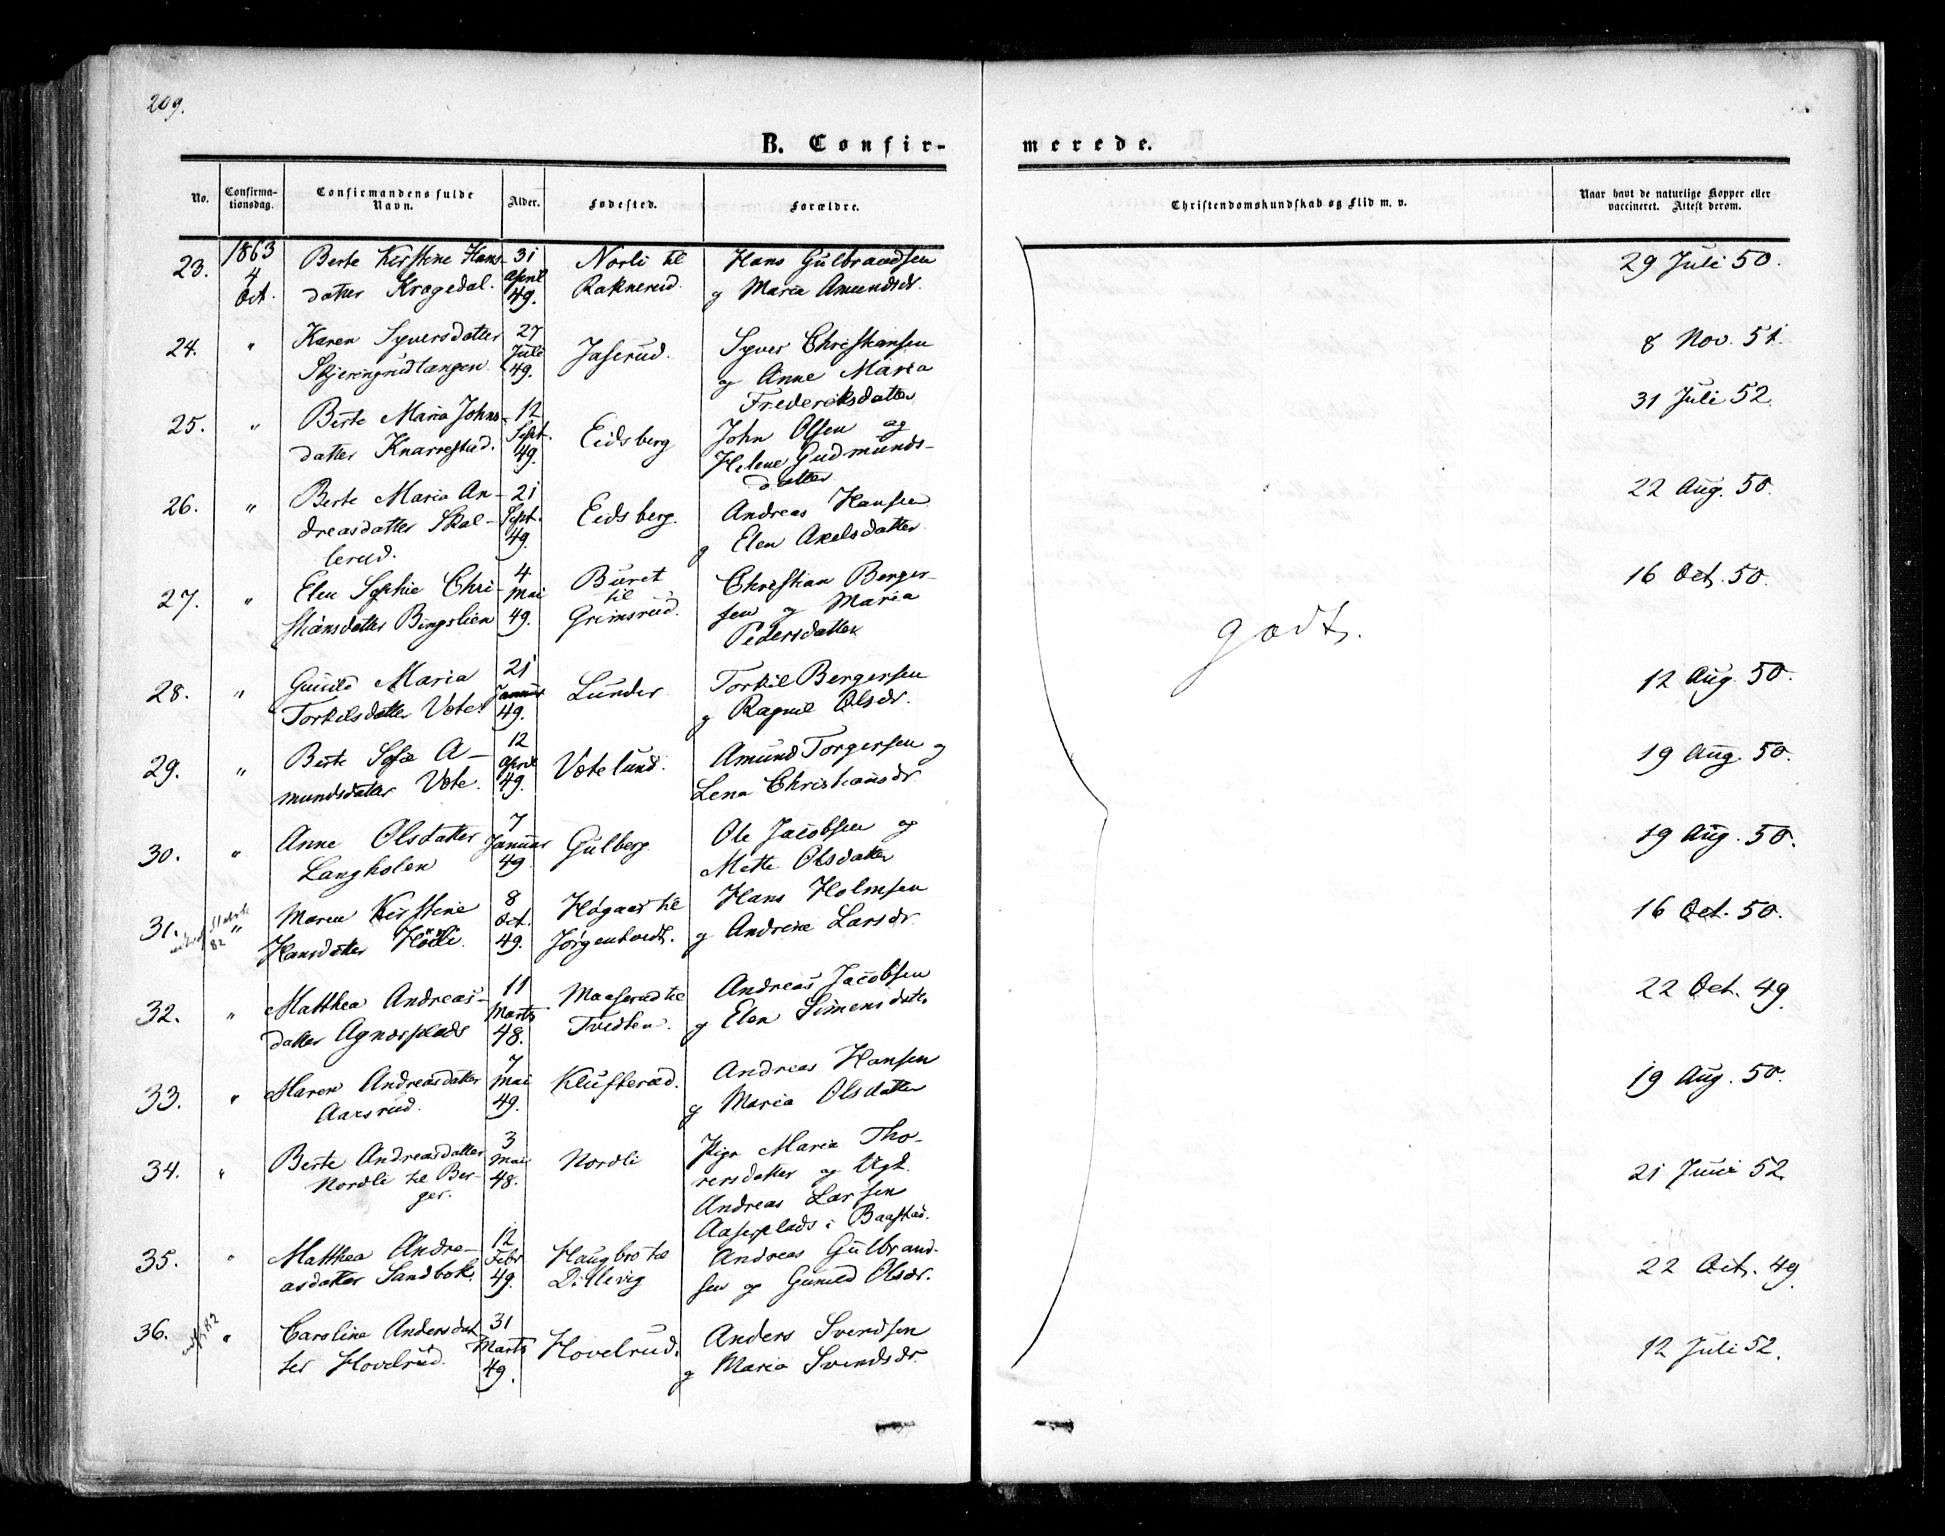 209.
B. Confir-
merede.
No.
Confirma-
tionsdag.
Confirmandens fulde
Navn.
Alder.
Fødested.
Forældre.
Christendomskundskab og Flid m. v.
Naar havt de naturlige Kopper eller
vaccineret. Attest derom.
23. 1863 Berte Kirstine Hans- 31 Norli til Hans Gulbrandsen 29 Juli 50.
4 datter Kragedal. April Raknerud. og Maria Amundsdr.
Oct. 49.
24. " Karen Syversdatter 27 Jaserud. Syver Christiansen 8 Nov. 51.
Skjeringrudtangen. Juli og Anne Maria
49. Frederiksdatter
25. " Berte Maria Johns- 12 Eidsberg John Olsen og 31 Juli 52.
datter Knarrestad. Sept. Helene Gudmunds-
49. datter
26. " Berte Maria An- 21 Eidsberg. Andreas Hansen 22 Aug. 50.
dreasdatter Skal- Sept. og Elen Axelsdatter
lerud. 49.
27. " Elen Sophie Chri- 4 Buret Christian Berger- 16 Oct. 50.
stiansdatter Bingslien Mai til sen og Maria
49. Grimsrud. Pedersdatter
godt.
28. " Gunild Maria 21 Lunder Torkil Bergersen 12 Aug. 50.
Torkilsdatter Væte. Januar og Ragnil Olsdr.
49.
29. " Berte Sofie A- 12 Vætelund. Amund Torgersen og 19 Aug. 50.
mundsdatter Væte. April Lena Christiansdr.
49.
30. " Anne Olsdatter 7 Gulberg. Ole Jacobsen og 19 Aug. 50.
Langholen Januar Mette Olsdatter
49.
31. " Maren Kirstine 8 Høgaas til Hans Holmsen 16 Oct. 50.
82 Hansdatter Oct. Jørgentvedt. og Andrine Larsdr.
49.
32. " Matthea Andreas- 11 Maaserud til Andreas Jacobsen 22 Oct. 49.
datter Agnæsplads Marts Tvedten. og Elen Simensdater
48.
33. " Maren Andreasdatter 7 Klufterud. Andreas Hansen 19 Aug. 50.
Aarsrud. Mai og Maria Olsdatter
49.
34. " Berte Andreasdatter 3 Nordli Pige Maria Tho- 21 Juni 52.
Nordli til Ber- Mai rersdatter og Ugt.
ger. 48. Andreas Larsen
Aaserplads i Baastad.
35. " Matthea Andre- 12 Haugbro til Andreas Gulbrand- 22 Oct. 49.
asdatter Sandbæk. Febr Dillevig sen og Gunild Olsdr.
49.
36. " Caroline Andersdat 31 Hovelrud. Anders Svendsen 12 Juli 52.
ter Hovelrud. Marts og Maria Svendsdr.
49.